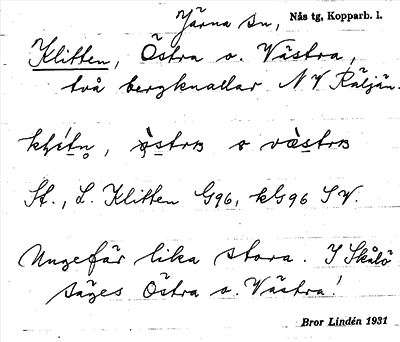 Järna sn, Nås tg, Kopparb. l.
Klitten, Östra o. Västra,
två bergknallar NV Räljän.
St., L. Klitten G96, kG96 SV.
Ungefär lika stora. I Skålö
säges Östra o. Västra!
Bror Lindén 1931